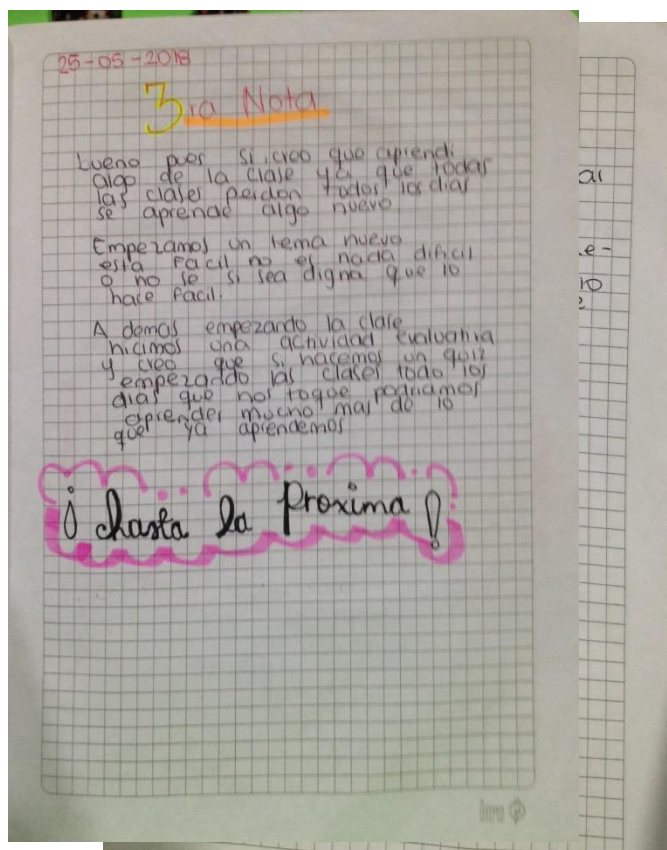 25-05-2018
3ra Nota
bueno pues si creo que aprendi
algo de la clase ya que todas
las clases perdon todos los dias
se aprende algo nuevo
Empezamos un tema nuevo
esta facil no es nada dificil
o no se si sea digna que lo
hace facil.
A demas empezando la clase
hicimos una actividad evaluativa
y creo que si hacemos un quiz
empezando las clases todo los
dias que nos toque podriamos
aprender mucho mas de lo
que ya aprendemos
¡ hasta la Proxima !
ar
e-
10